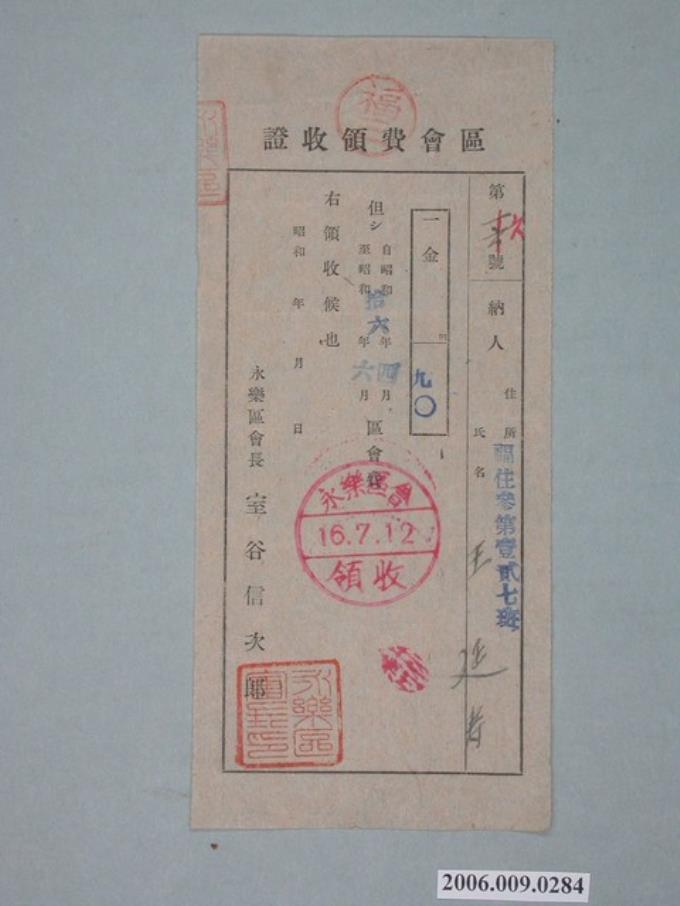 福
永樂區
區會費領收證
第 號
納人
住所 福住參第壹貳七班
氏名 王廷
一金 九〇
但シ 自昭和拾六年四月
至昭和 年六月 區會費
右領收候也
昭和 年 月 日
永樂區會長 室谷信次郎
永樂區會
16.7.12
領收
永樂區
會長印
2006.009.0284